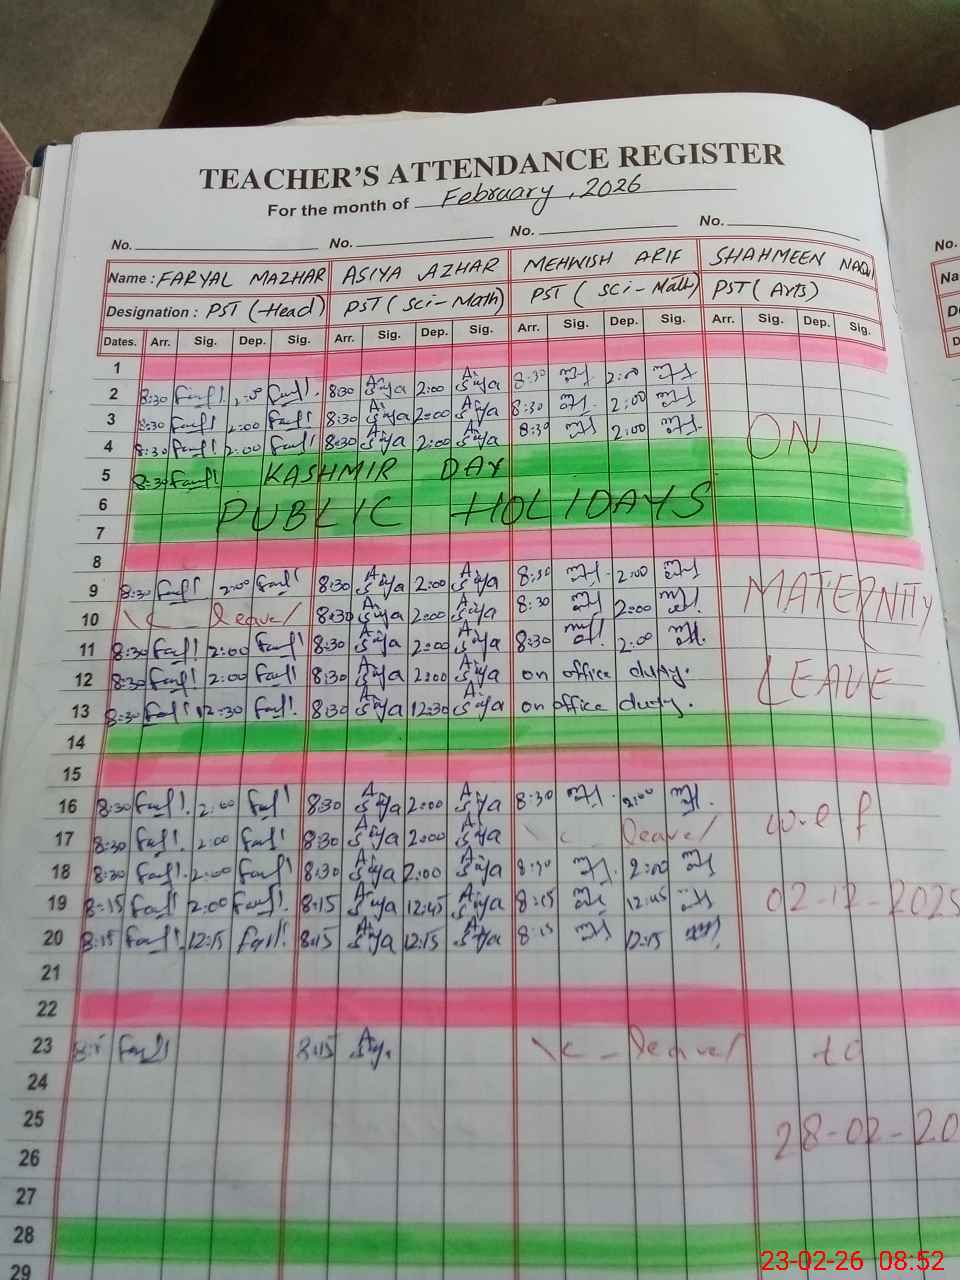 TEACHER'S ATTENDANCE REGISTER
For the month of February, 2026
No. No. No. No. No.
Name: FARYAL MAZHAR ASIYA AZHAR MEHWISH ARIF SHAHMEEN NAQVI Na
Designation: PST (Head) PST (Sci-Math) PST (Sci-Math) PST (Arts) De
Dates. Arr. Sig. Dep. Sig. Arr. Sig. Dep. Sig. Arr. Sig. Dep. Sig. Arr. Sig. Dep. Sig. D
1
2 8:30 2:00 8:30 Asiya 2:00 Asiya 8:30 2:00
3 8:30 2:00 8:30 Asiya 2:00 Asiya 8:30 2:00
4 8:30 2:00 8:30 Asiya 2:00 Asiya 8:30 2:00 ON
5 8:30 KASHMIR DAY
6 PUBLIC HOLIDAYS
7
8
9 8:30 2:00 8:30 Asiya 2:00 Asiya 8:30 2:00 MATERNITY
10 leave 8:30 Asiya 2:00 Asiya 8:30 2:00
11 8:30 2:00 8:30 Asiya 2:00 Asiya 8:30 2:00
12 8:30 2:00 8:30 Asiya 2:00 Asiya on office duty. LEAVE
13 8:30 12:30 8:30 Asiya 12:30 Asiya on office duty.
14
15
16 8:30 2:00 8:30 Asiya 2:00 Asiya 8:30 2:00
17 8:30 2:00 8:30 Asiya 2:00 Asiya leave w.e.f
18 8:30 2:00 8:30 Asiya 2:00 Asiya 8:30 2:00
19 8:15 2:00 8:15 Asiya 12:45 Asiya 8:15 12:45 02-12-2025
20 8:15 12:15 8:15 Asiya 12:15 Asiya 8:15 12:15
21
22
23 8:15 leave to
24
25 28-02-20
26
27
28
29
23-02-26 08:52